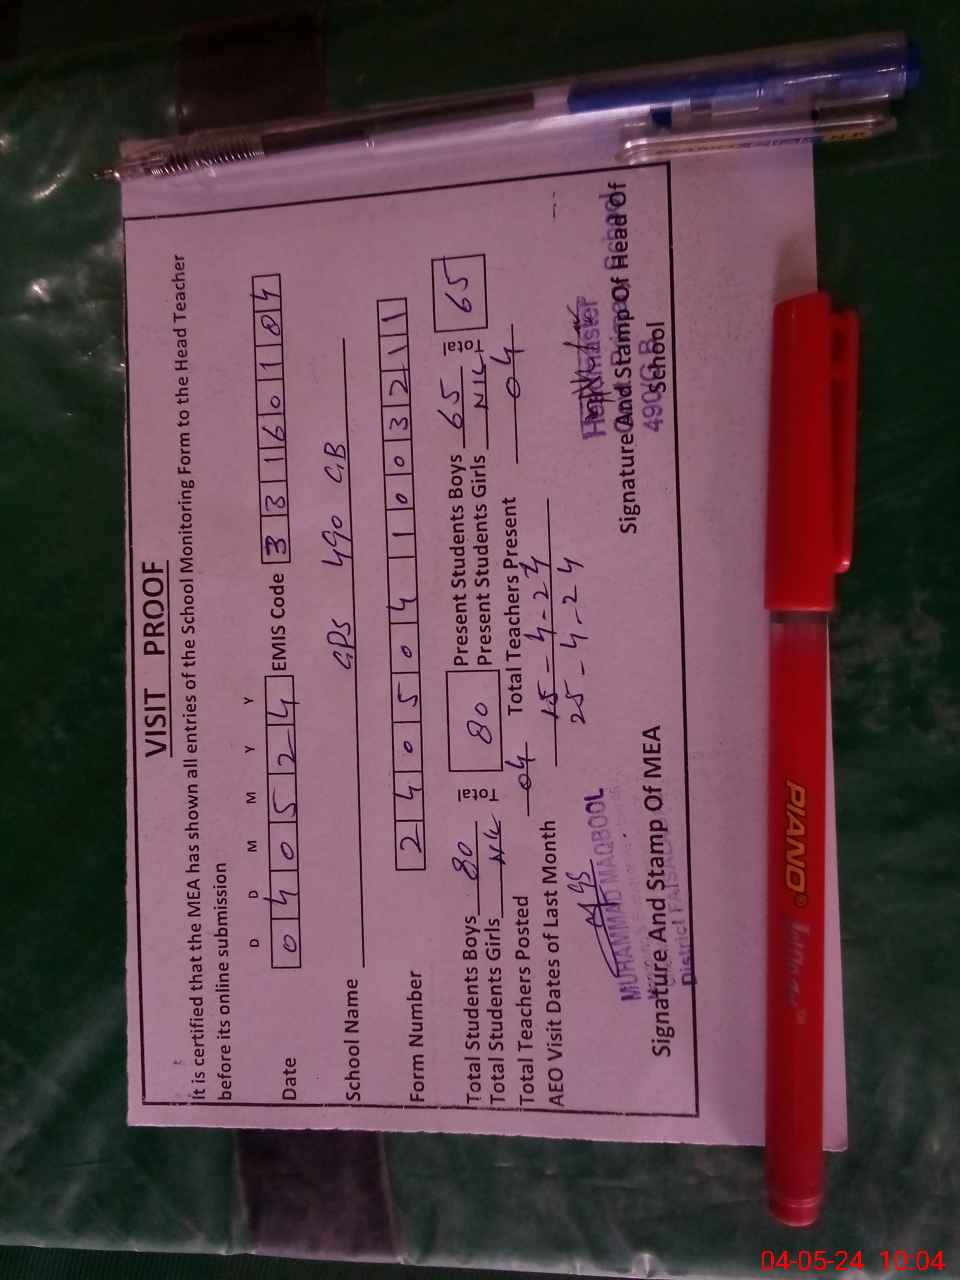 VISIT PROOF
It is certified that the MEA has shown all entries of the School Monitoring Form to the Head Teacher
before its online submission
D D M M Y Y
Date 0 4 0 5 2 4 EMIS Code 3 3 1 6 0 1 0 4
School Name GPS 490 GB
Form Number 2 4 0 5 0 4 1 0 0 3 2 1 1
Total Students Boys 80 80 Present Students Boys 65 65
Total Students Girls NIL Present Students Girls NIL
Total Teachers Posted 04 Total Teachers Present 04
AEO Visit Dates of Last Month 15-4-24
25-4-24
MUHAMMAD MAQBOOL
District FAISAL
Signature And Stamp Of MEA
Headmaster
490/G.B
Signature And Stamp Of Head Of
School
PIANO
04-05-24 10:04